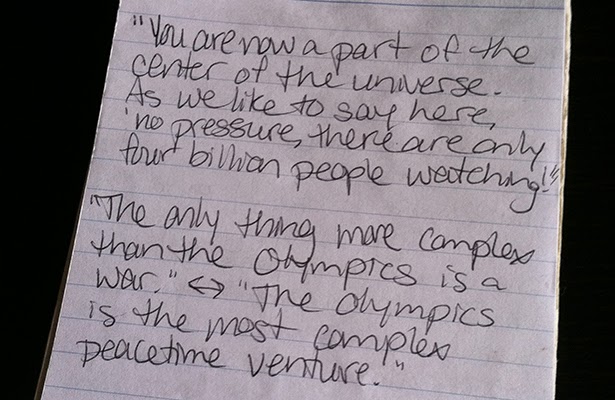 "You are now a part of the
center of the universe.
As we like to say here,
'no pressure, there are only
four billion people watching!'"
"The only thing more complex
than the Olympics is a
war." <-> "The Olympics
is the most complex
peacetime venture."